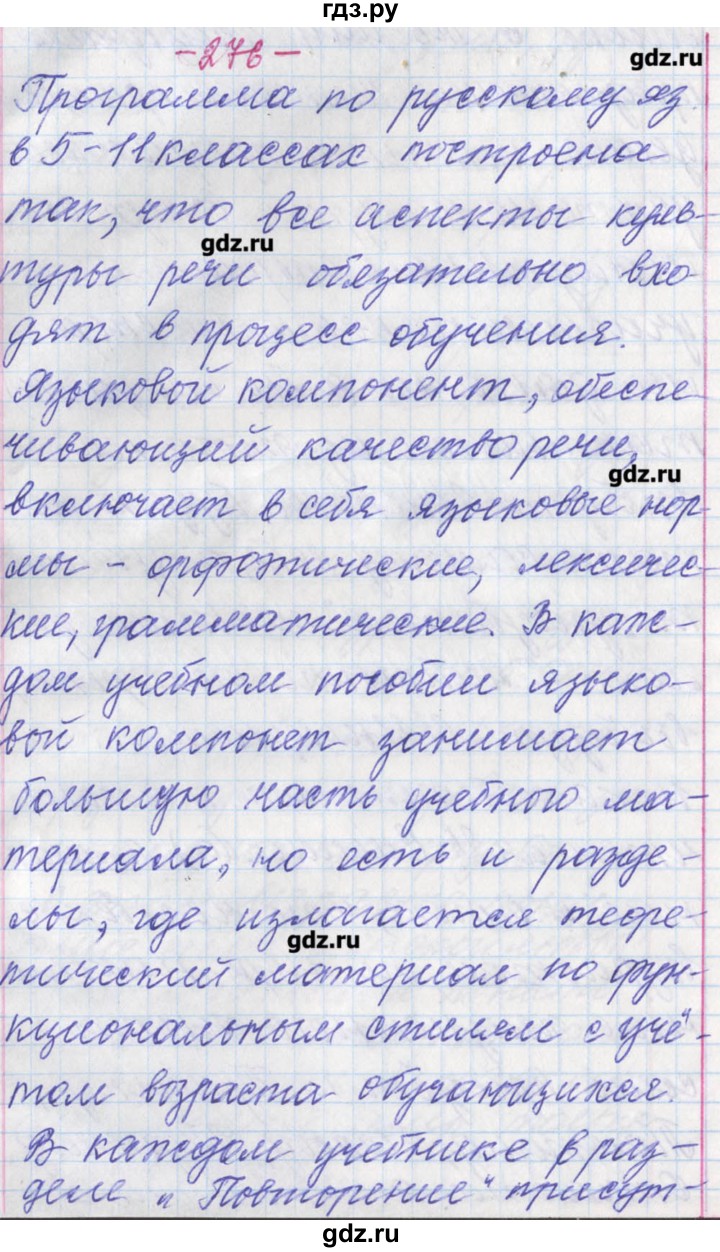 гдз.ру
gdz.ru
-276-
Программа по русскому яз.
в 5-11 классах построена
так, что все аспекты куль-
gdz.ru
туры речи обязательно вхо-
дят в процесс обучения.
Языковой компонент, обеспе-
чивающий качество речи,
gdz.ru
включает в себя языковые нор-
мы - орфоэпические, лексичес-
кие, грамматические. В каж-
дом учебном пособии языко-
вой компонет занимает
большую часть учебного ма-
териала, но есть и разде-
лы, где излагается теоре-
gdz.ru
тический материал по фун-
кциональным стилям с учё-
том возраста обучающихся.
В каждом учебнике в раз-
деле "Повторение" присут-
gdz.ru